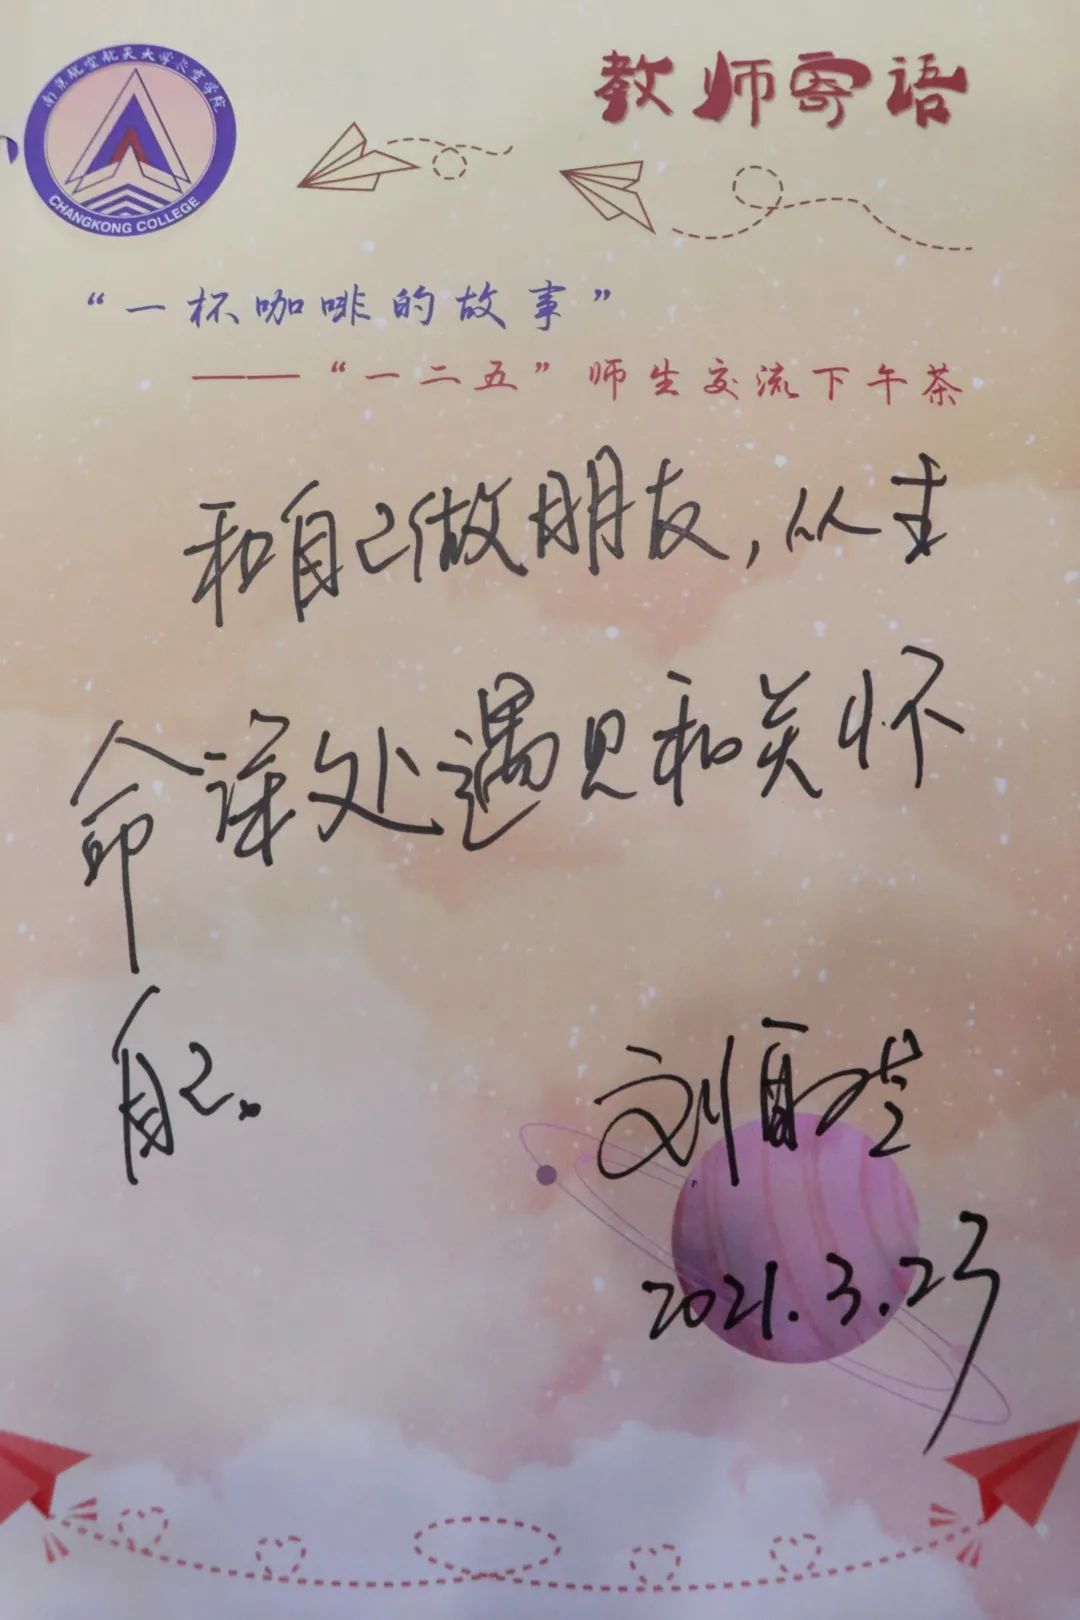 南京航空航天大学长空学院
CHANGKONG COLLEGE
教师寄语
“一杯咖啡的故事”
——“一二五”师生交流下午茶
和自己做朋友，从生
命深处遇见和关怀
自己。
刘
2021.3.23